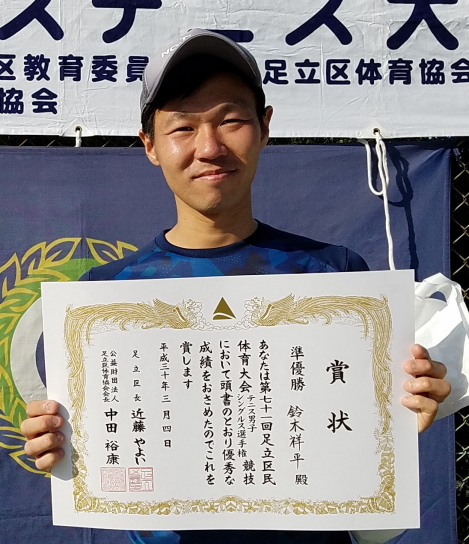 ステニス大
区教育委員
足立区体育協会
協会
賞状
準優勝 鈴木祥平 殿
あなたは第七十一回足立区民
体育大会テニス男子シングルス選手権競技
において頭書のとおり優秀な
成績をおさめたのでこれを
賞します
平成三十年三月四日
足立区長 近藤やよい
公益財団法人
足立区体育協会会長 中田裕康